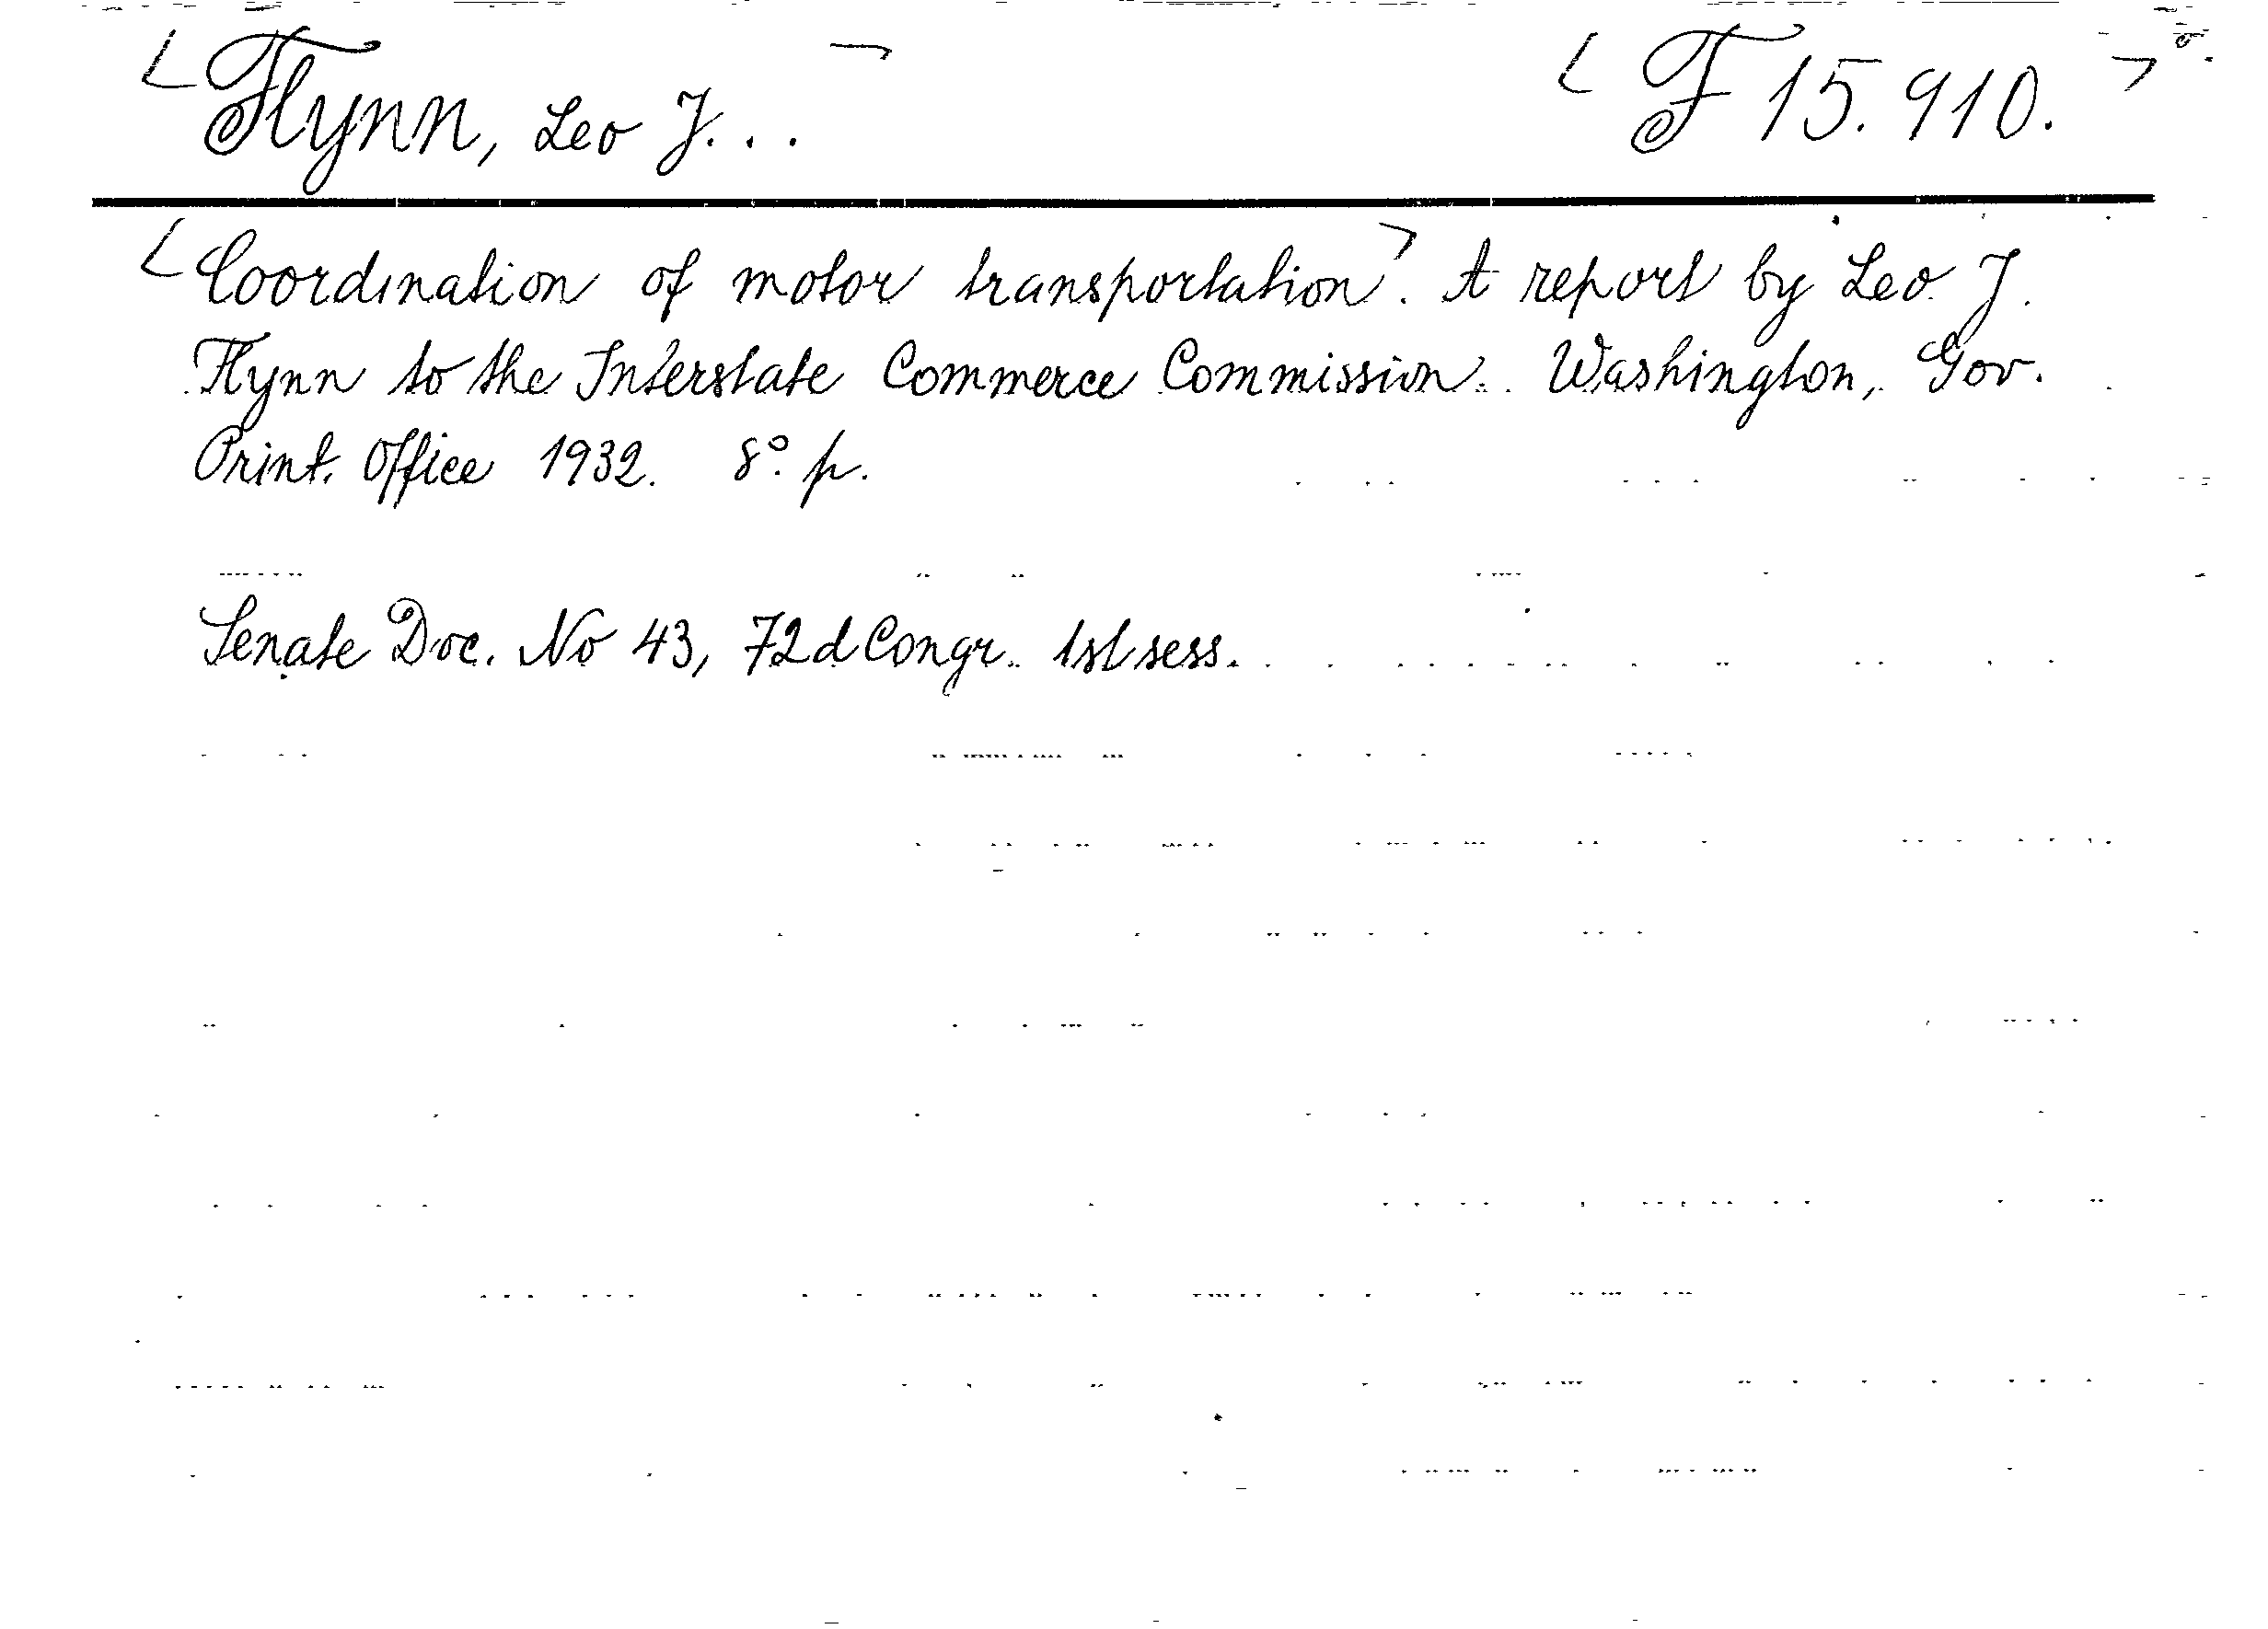 Flynn, Leo J... F 15.910.
Coordination of motor transportation. A report by Leo J.
Flynn to the Interstate Commerce Commission. Washington, Gov.
Print. Office 1932. 8° p.
Senate Doc. No 43, 72d Congr. 1st sess.